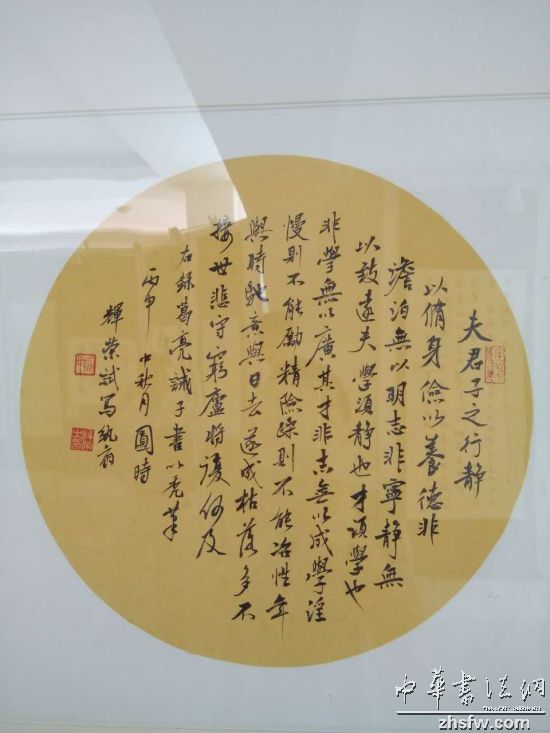 夫君子之行静
以脩身儉以養德非
澹泊無以明志非寧静無
以致遠夫學須静也才須學也
非學無以廣其才非志無以成學淫
慢則不能勵精險躁則不能冶性年
與時馳意與日去遂成枯落多不
接世悲守窮廬將復何及
右録葛亮誡子書以秃筆
丙申中秋月圓時
輝榮試寫紈扇
中華書法網
zhsfw.com